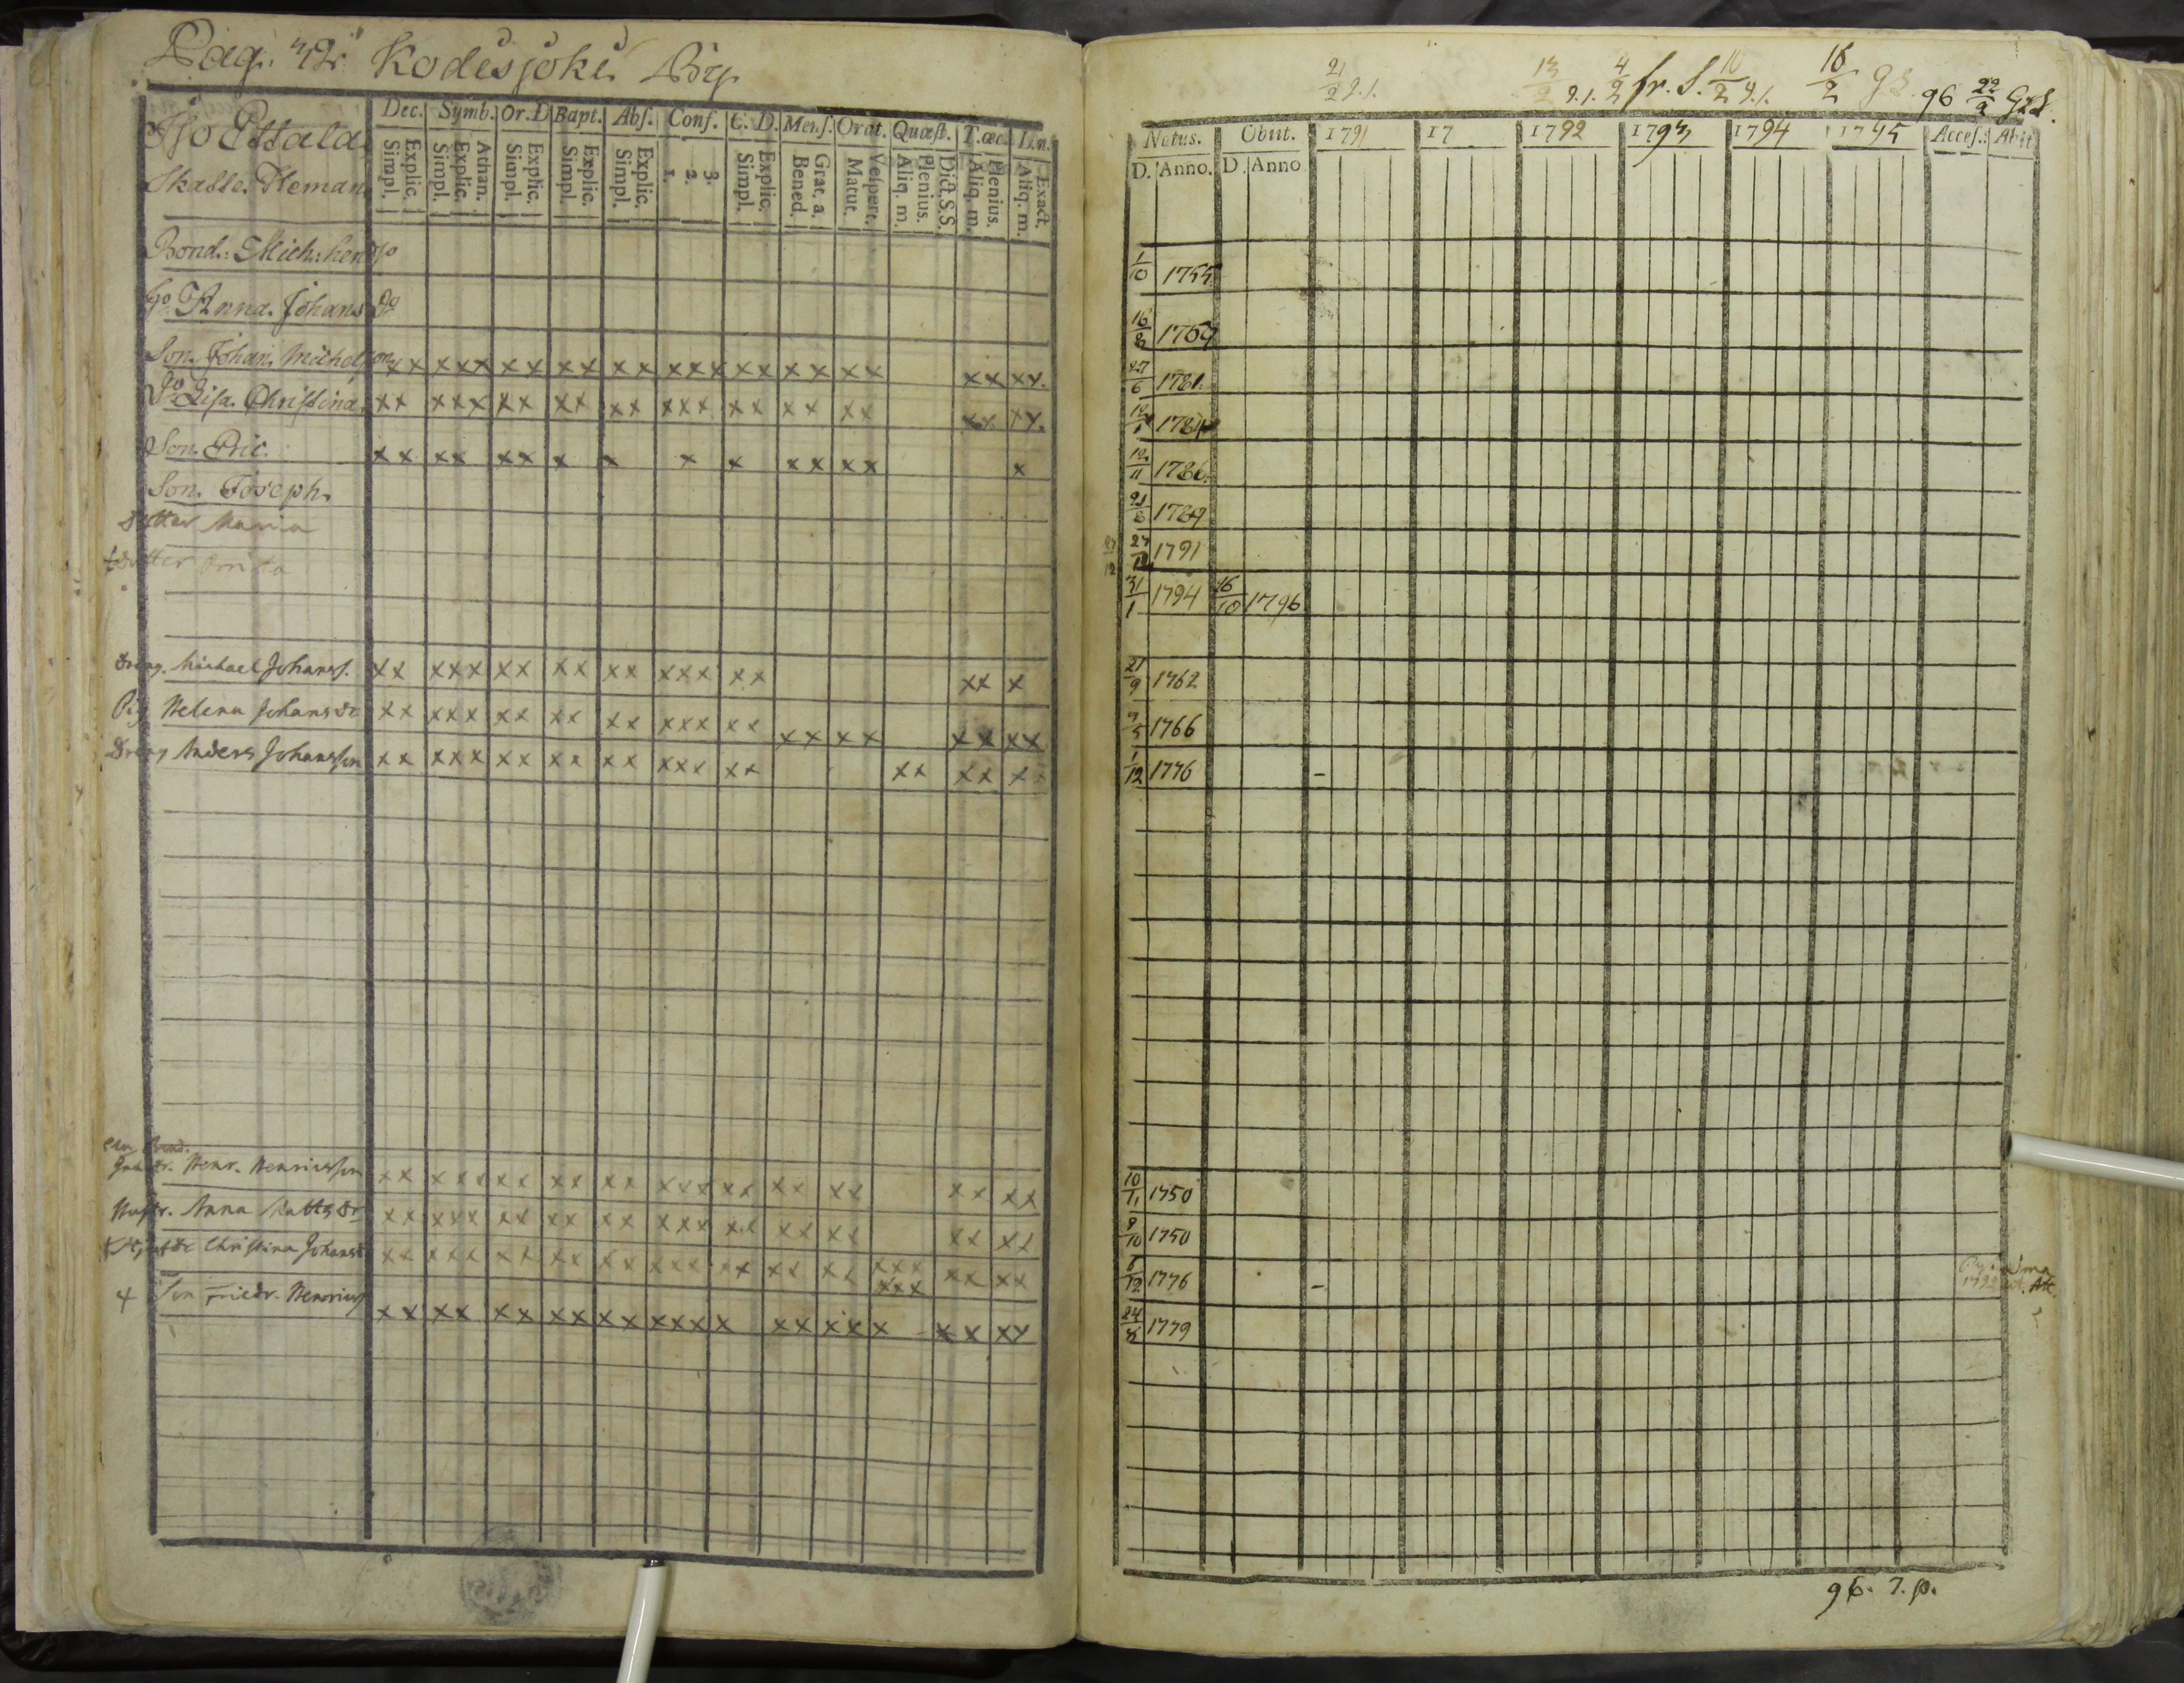 Pag. 42. Kodesjoki By.
Dec. Symb. Or. D Bapt. Abs. Conf. C. D. Mens. Orat. Quæst. T. œc.
Explic. Simpl. Athan. Explic. Simpl. Explic. Simpl. Explic. Simpl. Explic. Simpl. 3. 2. 1. Explic. Simpl. Grat. a. Bened. Vespert. Matut. Dict. S.S. Plenius. Aliq. m. Plenius. Aliq. m. Exact. Aliq. m.
Iso Pittala
Skatte Heman
Bond. Mich. Hen
Anna. Johans Do
Son. Johan. Michelson xx xxx xx xx xx xxx xx xx xx xx xx.
Lisa. Christina. xx xxx xx xx xx xxx xx xx xx xx xx.
Son. Eric. xx xx xx x x x x xx xx x
Son. Joseph.
Dotter Maria
Dotter
Dreng. Michael Johanss. xx xxx xx xx xx xxx xx xx x
Pig Helena Johansdr xx xxx xx xx xx xxx xx xx xx xx xx
Dreng Anders Johansson xx xxx xx xx xx xxx xx xx xx xx
Bond.
Henr. Henricsson xx xxx xx xx xx xxx xx xx xx xx xx
Hustr. Anna Mattsdr xx xxx xx xx xx xxx xx xx xx xx xx
Christina Johansd xx xxx xx xx xx xxx xx xx xx xxx xx xx
xxx
Son Friedr. Henrics xx xx xx xx xx xxxx xx xxx x x xx
21/2 9.1. 13/2 9.1. 4/2 fr. S. 10/2 9.1. 16/2 96 22/2
Natus. Obiit. 1791 17 1792 1793 1794 1795 Acces.: Abit
D. Anno. D. Anno
1/10 1755
16/8 1769
27/6 1781.
1784
12/11 1786.
21/8 1789
27/12 1791
31/1 1794 16/10 1796
21/9 1762
1766
1/12 1776 -
10/11 1750
9/10 1750
6/12 1776 -
24/8 1779
96. 7. p.